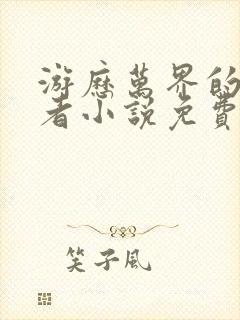 游歷萬界的
者小說免費
笑子風